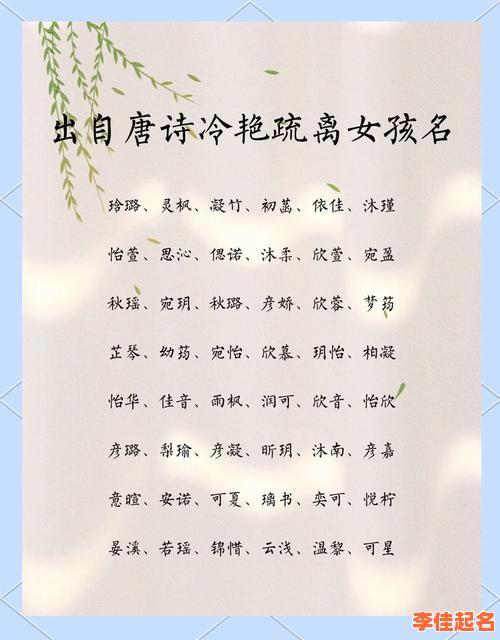 出自唐诗冷艳疏离女孩名
玲璐、灵枫、凝竹、初菡、依佳、沐瑾
怡萱、思沁、偲诺、沐柔、欣萱、宛盈
秋瑶、宛玥、秋璐、彦娇、欣蓉、梦筠
芷琴、幼筠、宛怡、欣慕、玥怡、柏凝
怡华、佳音、雨枫、润可、欣音、怡欣
彦璐、梨瑜、彦凝、昕玥、沐南、彦嘉
意暄、安诺、可夏、璃书、奕可、悦柠
晏溪、若瑶、锦惜、云浅、温黎、可星
李佳起名